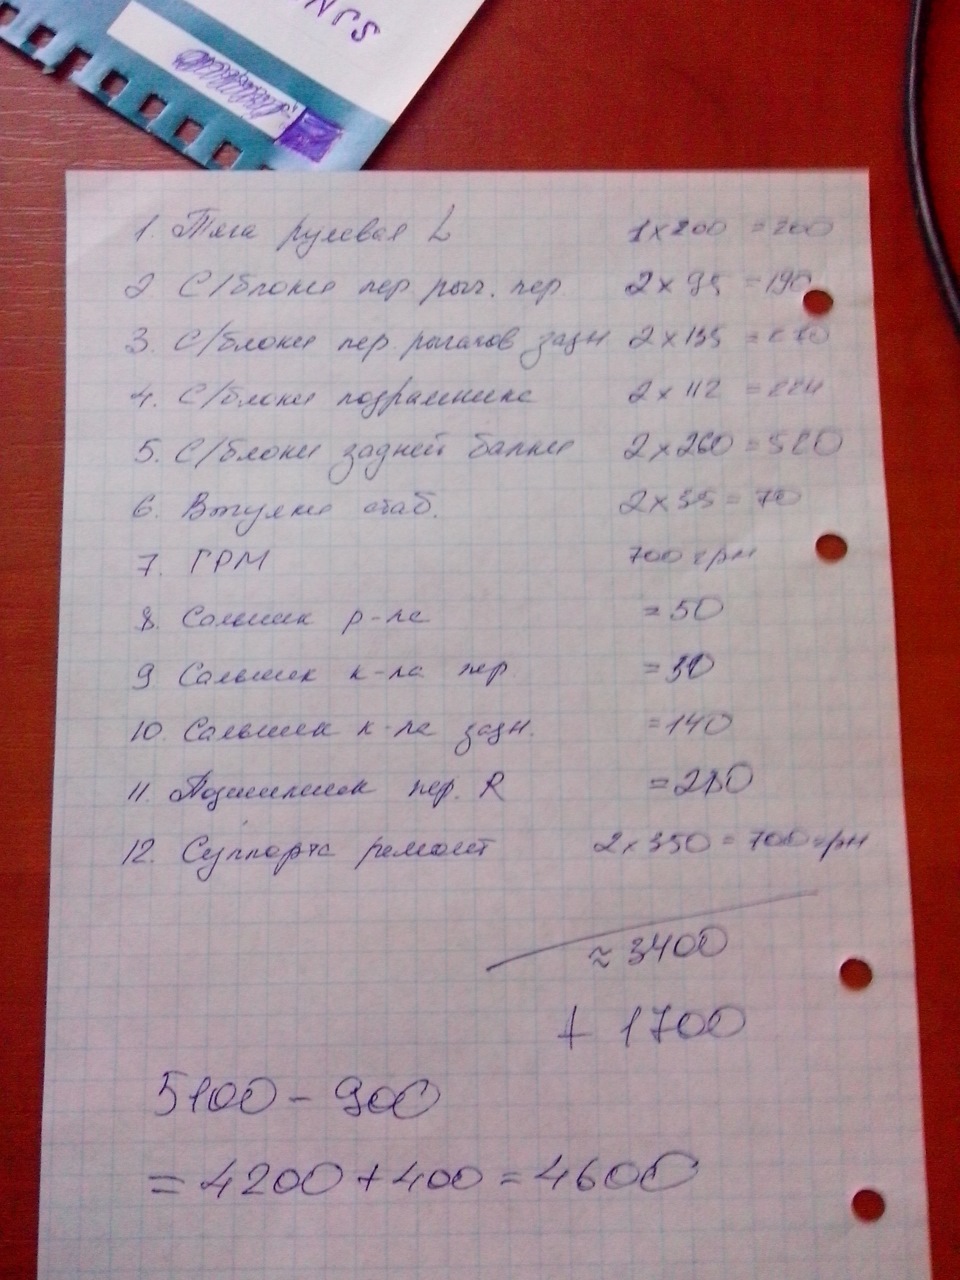 1. Тяга рулевая L 1x200 =200
2 С/блоки пер рыч. пер. 2x95 =190
3. С/блоки пер. рычагов задн 2x135 =270
4. С/блоки подрамника 2x112 =224
5. С/блоки задней балки 2x260 =520
6. Втулки стаб. 2x35 = 70
7. ГРМ 700 грн
8. Сальник р-ла =50
9 Сальник к-ла пер =30
10. Сальник к-ла задн. =140
11. Подшипник пер. R =280
12. Суппорта ремонт 2x350 = 700 грн
≈ 3400
+ 1700
5100 - 900
= 4200 + 400 = 4600